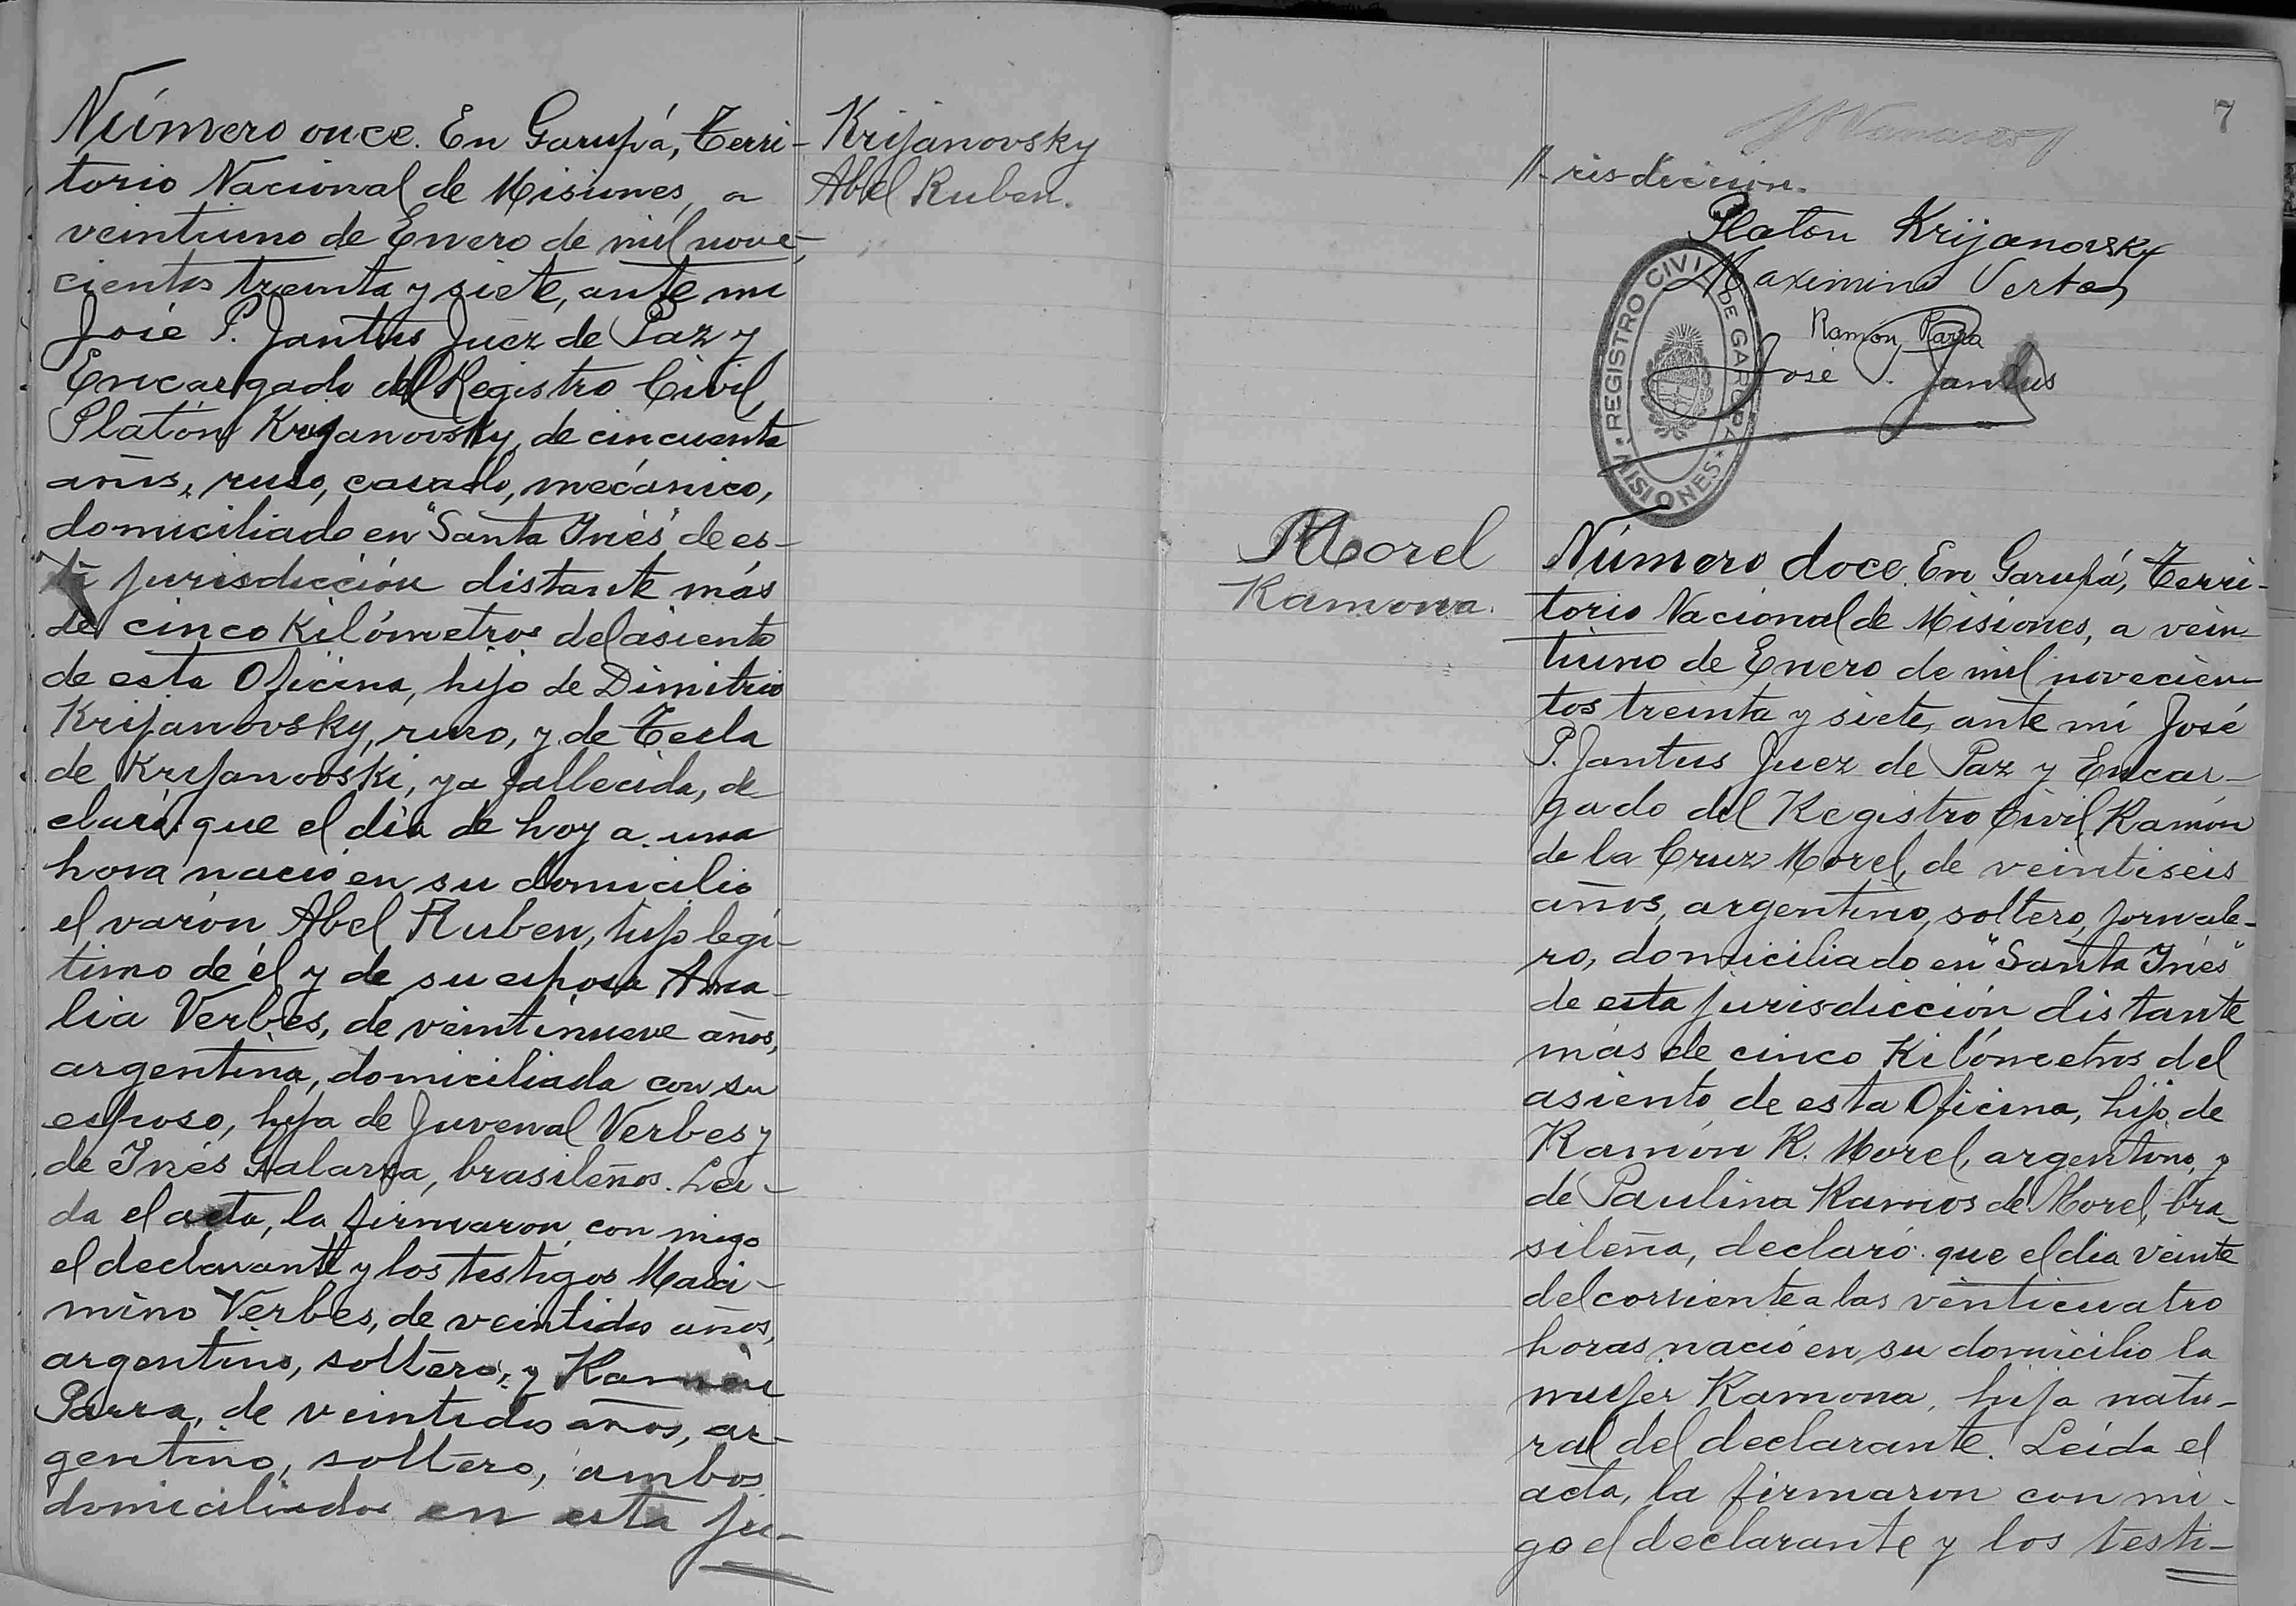 Número once. En Garupá, Terri-
torio Nacional de Misiones, a
veintiuno de Enero de mil nove-
cientos treinta y siete, ante mi
José P. Jantus Juez de Paz y
Encargado del Registro Civil,
Platón Krijanovsky, de cincuenta
años, ruso, casado, mecánico,
domiciliado en "Santa Inés" de es-
ta jurisdicción distante más
de cinco Kilómetros del asiento
de esta Oficina, hijo de Dimitrio
Krijanovsky, ruso, y de Tecla
de Krijanovski, ya fallecida, de
claró: que el día de hoy a una
hora nació en su domicilio
el varón Abel Ruben, hijo legi-
timo de él y de su esposa Ama-
lia Verbes, de veintinueve años,
argentina, domiciliada con su
esposo, hija de Juvenal Verbes y
de Inés Galarza, brasileños. Lei-
da el acta, la firmaron con migo
el declarante y los testigos Maxi-
mino Verbes, de veintidos años,
argentino, soltero, y Ramón
Parra, de veintidos años, ar-
gentino, soltero, ambos
domiciliados en esta ju-
Krijanovsky
Abel Ruben.
7
//-risdicción.
Platon Krijanovsky
Maximino Verbes
Ramon Parra
José P. Jantus
REGISTRO CIVIL DE GARUPA
* MISIONES *
Morel
Ramona.
Número doce. En Garupá, Terri-
torio Nacional de Misiones, a vein-
tiuno de Enero de mil novecien-
tos treinta y siete, ante mí José
P. Jantus Juez de Paz y Encar-
gado del Registro Civil, Ramón
de la Cruz Morel, de veintiseis
años, argentino, soltero, jornale-
ro, domiciliado en "Santa Inés"
de esta jurisdicción distante
más de cinco Kilómetros del
asiento de esta Oficina, hijo de
Ramón R. Morel, argentino, y
de Paulina Ramos de Morel, bra-
sileña, declaró: que el día veinte
del corriente a las venticuatro
horas nació en su domicilio la
mujer Ramona, hija natu-
ral del declarante. Leída el
acta, la firmaron con mi-
go el declarante y los testi-